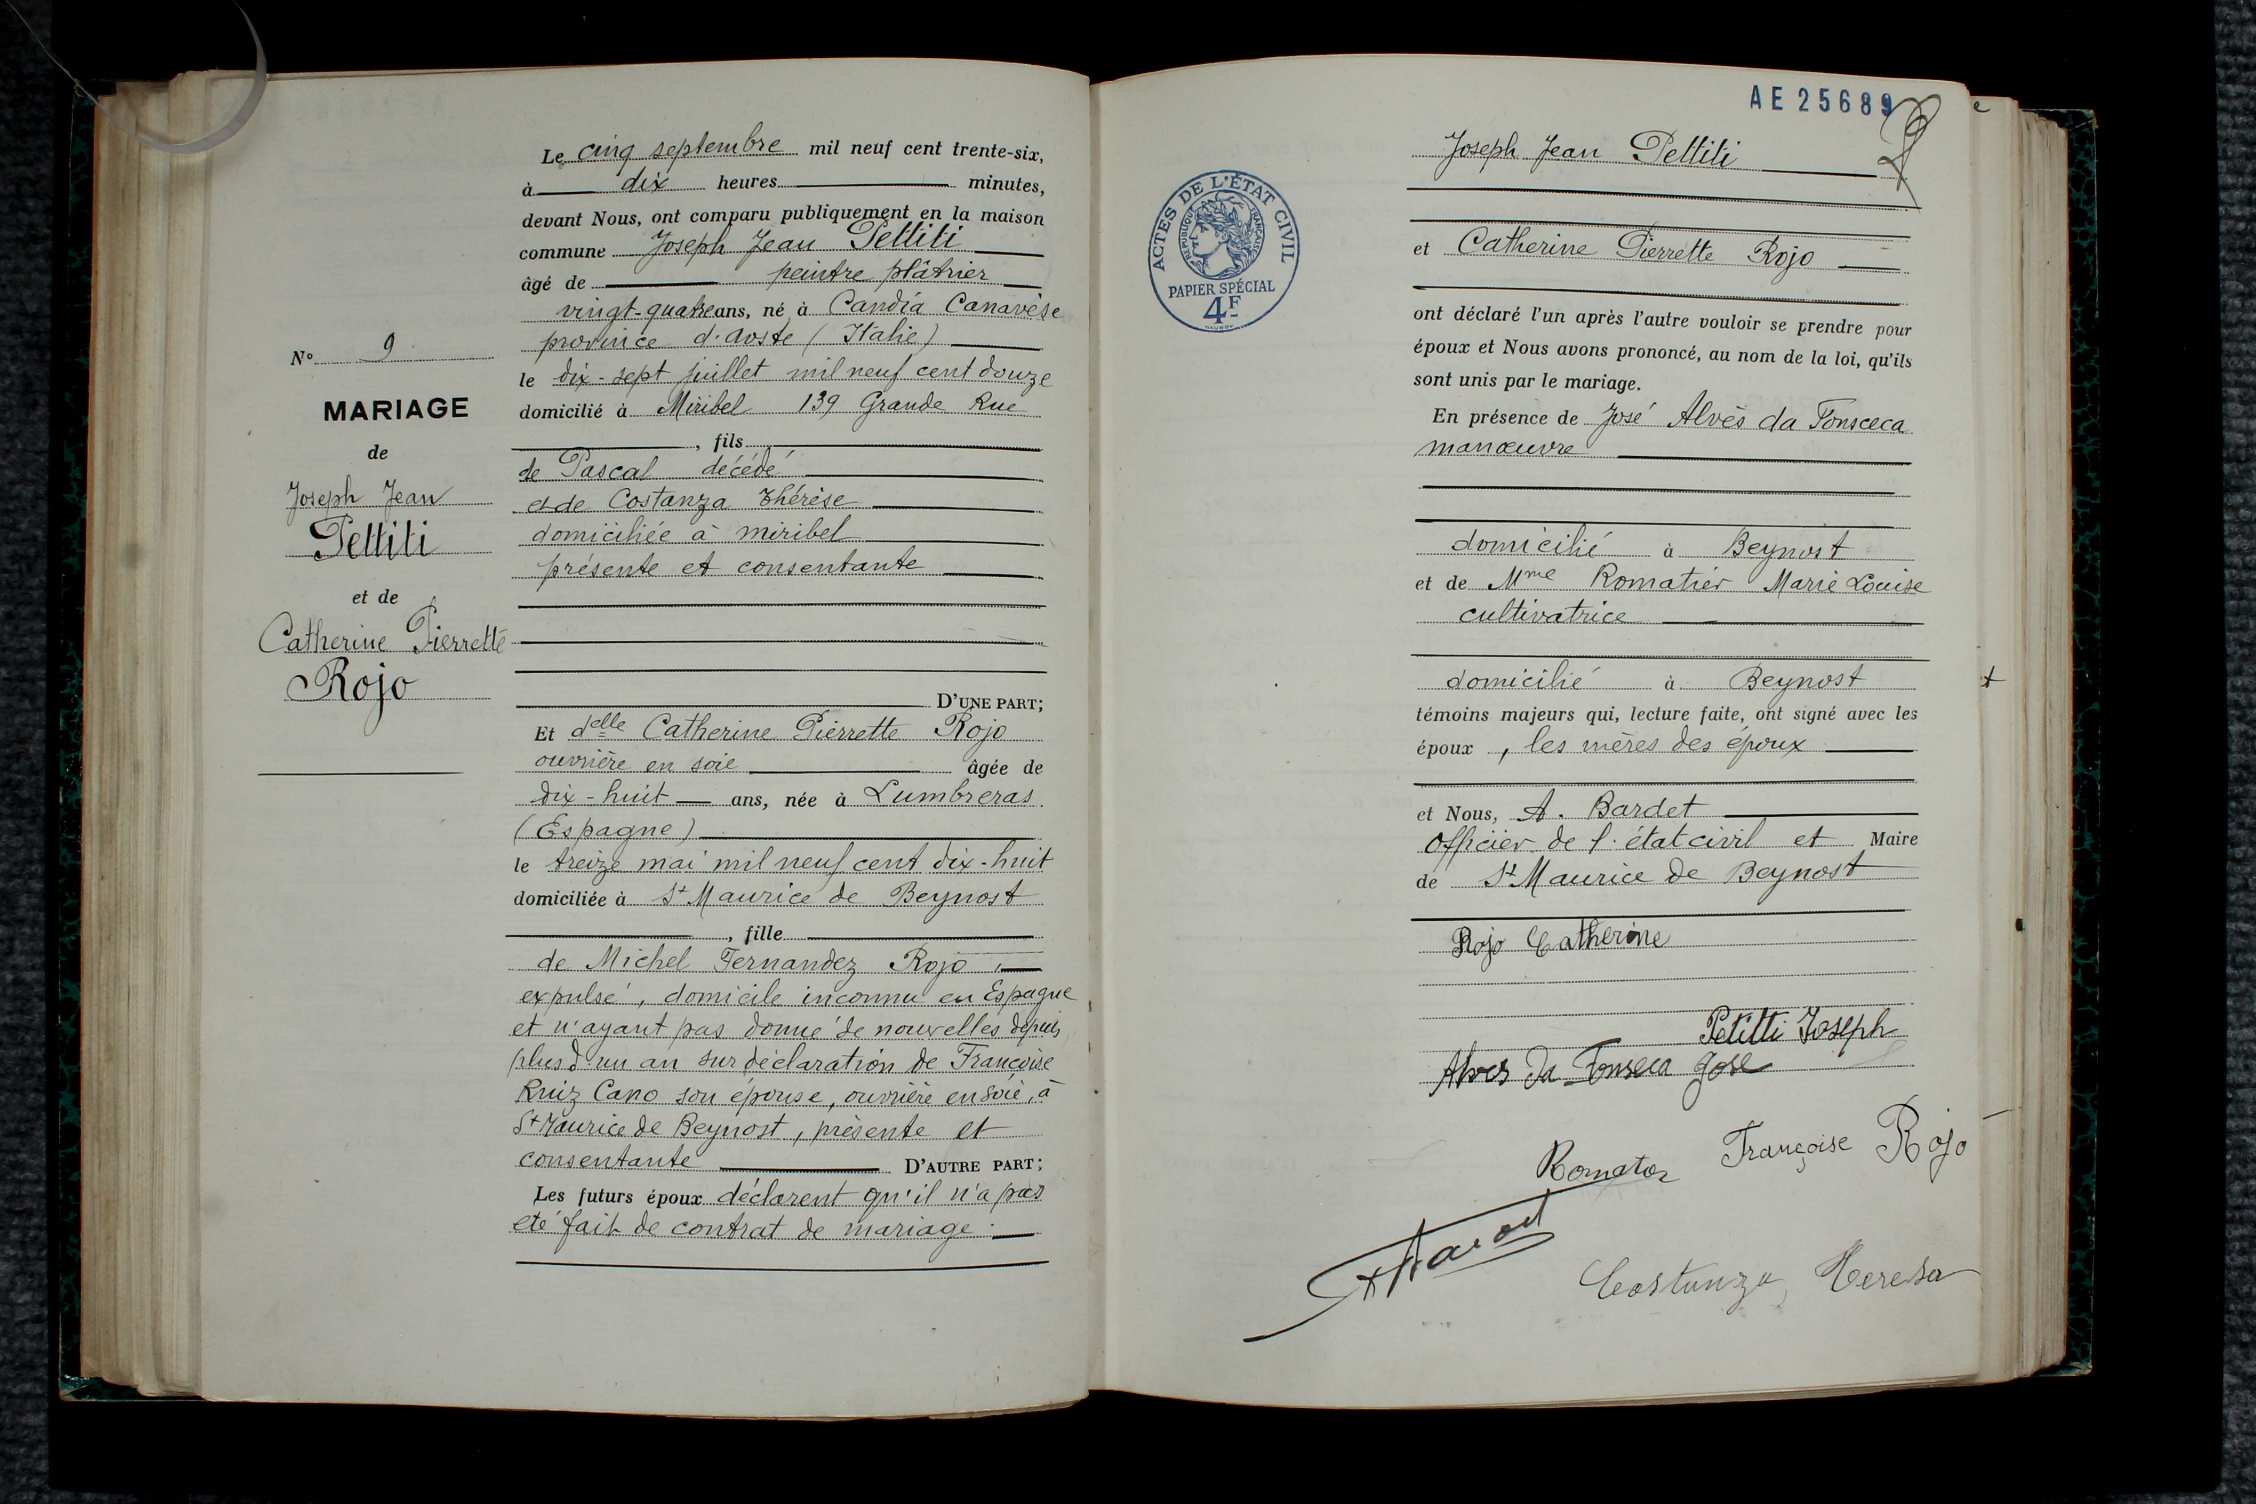 N° 9
MARIAGE
de
Joseph Jean
Pettiti
et de
Catherine Pierrette
Rojo
Le cinq septembre mil neuf cent trente-six,
à dix heures minutes,
devant Nous, ont comparu publiquement en la maison
commune Joseph Jean Pettiti
âgé de peintre plâtrier
vingt-quatre ans, né à Candia Canavèse
province d'Aoste (Italie)
le dix-sept juillet mil neuf cent douze
domicilié à Miribel 139 Grande Rue
, fils
de Pascal décédé
et de Costanza Thérèse
domiciliée à miribel
présente et consentante
D'UNE PART;
Et delle Catherine Pierrette Rojo
ouvrière en soie âgée de
dix-huit ans, née à Lumbreras
(Espagne)
le treize mai mil neuf cent dix-huit
domiciliée à St Maurice de Beynost
, fille
de Michel Fernandez Rojo,
expulsé, domicile inconnu en Espagne
et n'ayant pas donné de nouvelles depuis
plus d'un an sur déclaration de Françoise
Ruiz Cano son épouse, ouvrière en soie, à
St Maurice de Beynost, présente et
consentante D'AUTRE PART;
Les futurs époux déclarent qu'il n'a pas
été fait de contrat de mariage.
AE25689
ACTES DE L'ÉTAT CIVIL
RÉPUBLIQUE FRANÇAISE
PAPIER SPÉCIAL
4F
Joseph Jean Pettiti
et Catherine Pierrette Rojo
ont déclaré l'un après l'autre vouloir se prendre pour
époux et Nous avons prononcé, au nom de la loi, qu'ils
sont unis par le mariage.
En présence de José Alvès da Fonsceca
manœuvre
domicilié à Beynost
et de Mme Romatier Marie Louise
cultivatrice
domicilié à Beynost
témoins majeurs qui, lecture faite, ont signé avec les
époux, les mères des époux
et Nous, A. Bardet
Officier de l'état civil et Maire
de St Maurice de Beynost
Rojo Catherine
Petitti Joseph
Alves Da Fonseca Jose
Françoise Rojo
Costanza Teresa